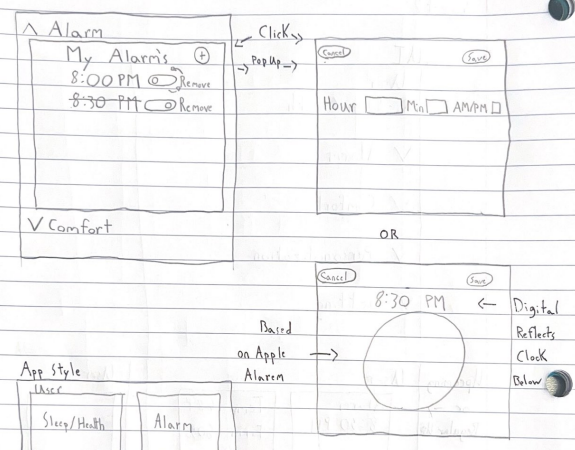 ∧ Alarm
My Alarm's +
8:00 PM Remove
8:30 PM Remove
∨ Comfort
Click
Pop Up
Cancel Save
Hour Min AM/PM
OR
Cancel Save
8:30 PM
Digital
Reflects
Clock
Below
Based
on Apple
Alarem
App Style
User
Sleep/Health Alarm